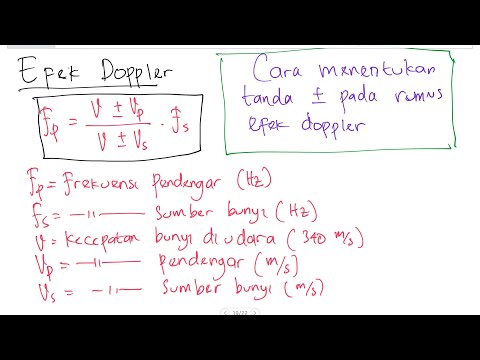 Efek Doppler
fp = v ± vp / v ± vs . fs
Cara menentukan
tanda ± pada rumus
efek doppler
fp = frekuensi pendengar (Hz)
fs = —11— sumber bunyi (Hz)
v = kecepatan bunyi di udara (340 m/s)
vp = —11— pendengar (m/s)
vs = —11— sumber bunyi (m/s)
19/22